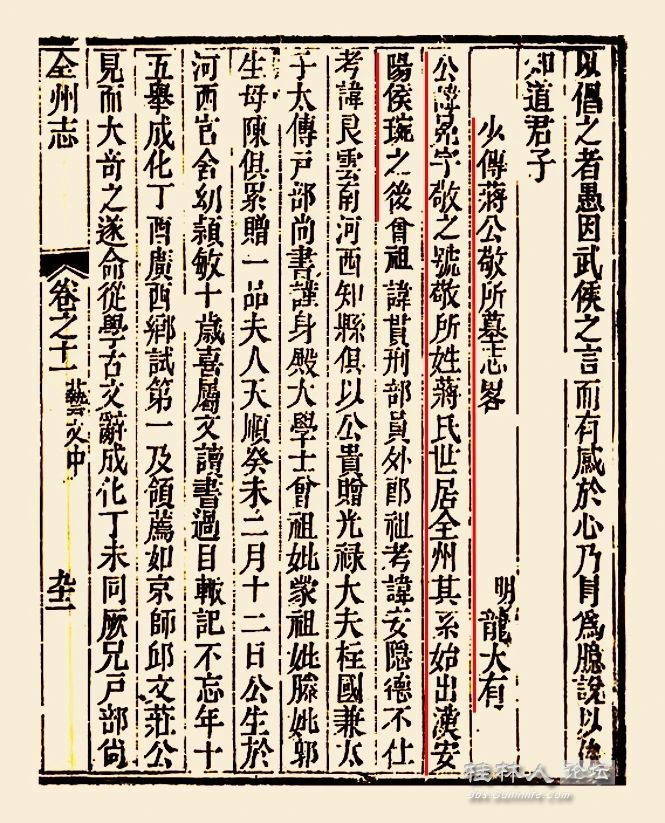 以倡之者愚因武侯之言而有感於心乃肆為臆說以俟
知道君子
少傅蔣公敬所墓志畧
明龍大有
公諱冕字敬之號敬所姓蔣氏世居全州其系始出漢安
陽侯琬之後曾祖諱貫刑部員外郎祖考諱安隱德不仕
考諱良雲南河西知縣俱以公貴贈光祿大夫柱國兼太
子太傅戶部尚書謹身殿大學士曾祖妣蒙祖妣滕妣郭
生母陳俱累贈一品夫人天順癸未二月十二日公生於
河西官舍幼穎敏十歲喜屬文讀書過目輙記不忘年十
五舉成化丁酉廣西鄉試第一及領薦如京師邱文莊公
見而大奇之遂命從學古文辭成化丁未同厥兄戶部尚
全州志
卷之十一
藝文中
桂林人论坛
bbs.guilinlife.com